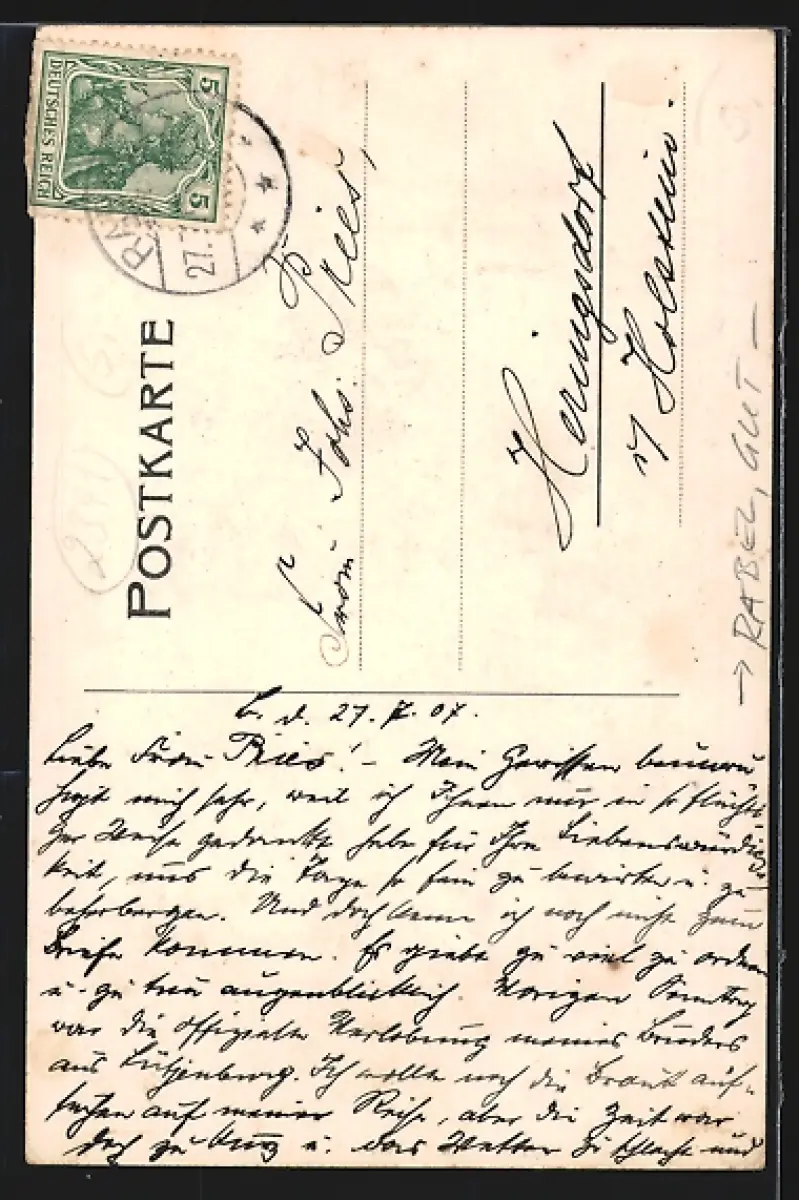 DEUTSCHES REICH
5 5
27.
POSTKARTE
Frau Johs. Pries,
Heringsdorf
i/ Holstein.
→ RABEL, GUT –
2841
B. d. 27. 7. 07.
Liebe Frau Pries! – Mein Gewissen beunru
higt mich sehr, weil ich Ihnen nur in so flüchti
ger Weise gedankt habe für Ihre Liebenswürdig
keit, uns die Tage so fein zu bewirten u. zu
beherbergen. Und doch kann ich noch nicht zum
Briefe kommen. Es giebt zu viel zu ordnen
u. zu tun augenblicklich. Vorigen Sonntag
war die offizielle Verlobung meines Bruders
aus Lütjenburg. Ich wollte noch die Braut auf-
suchen auf meiner Reise, aber die Zeit war
doch zu kurz u. das Wetter zu schlecht und